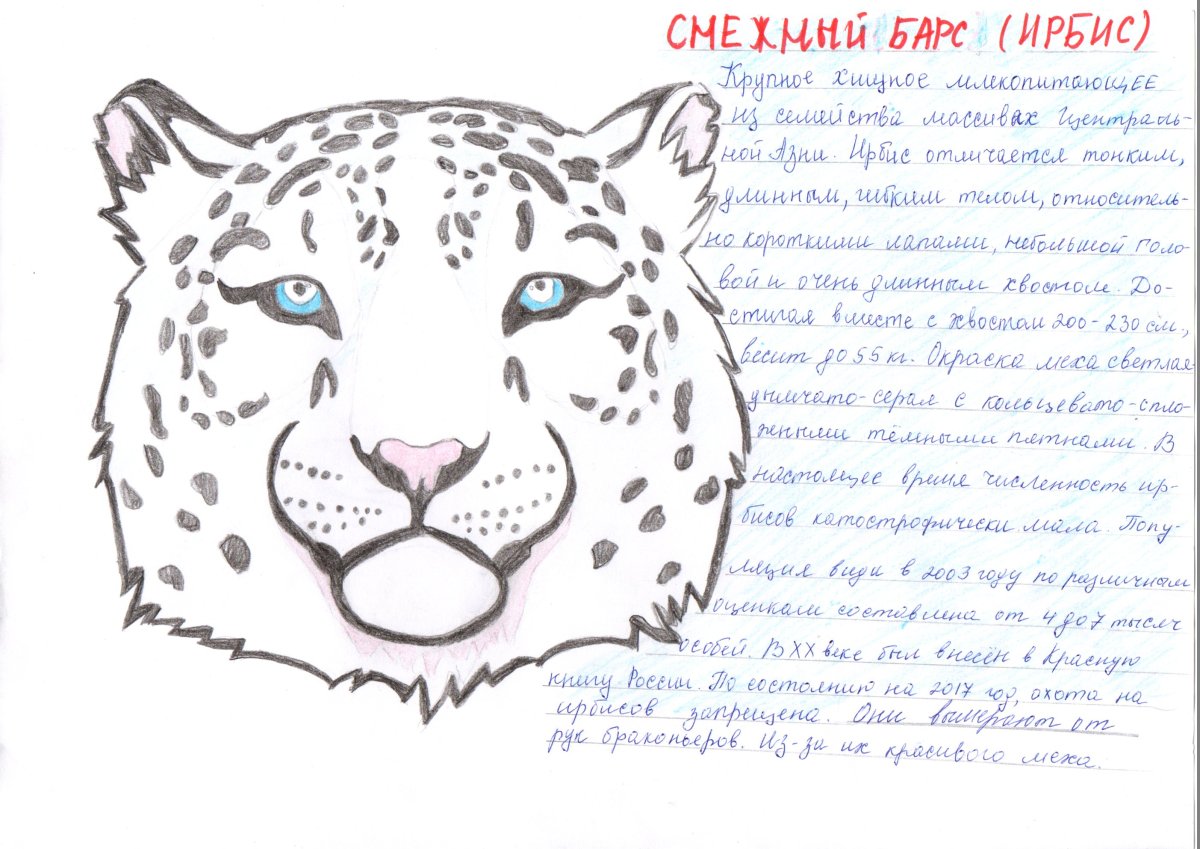 СМЕЖНЫЙ БАРС (ИРБИС)
Крупное хищное млекопитающЕЕ
из семейства массивах Централь-
ной Азии. Ирбис отличается тонким,
длинным, гибким телом, относитель-
но короткими лапами, небольшой голо-
вой и очень длинным хвостом. До-
стигая вместе с хвостом 200-230 см,
весит до 55 кг. Окраска меха светлая
дымчато-серая с кольцевато-спло-
женными тёмными пятнами. В
настоящее время численность ир-
бисов катострофически мала. Попу-
ляция види в 2003 году по различным
оценкам составлена от 4 до 7 тысяч
особей. В XX веке был внесён в Красную
книгу России. По состоянию на 2017 год, охота на
ирбисов запрещена. Они вымирают от
рук браконьеров. Из-за их красивого меха.